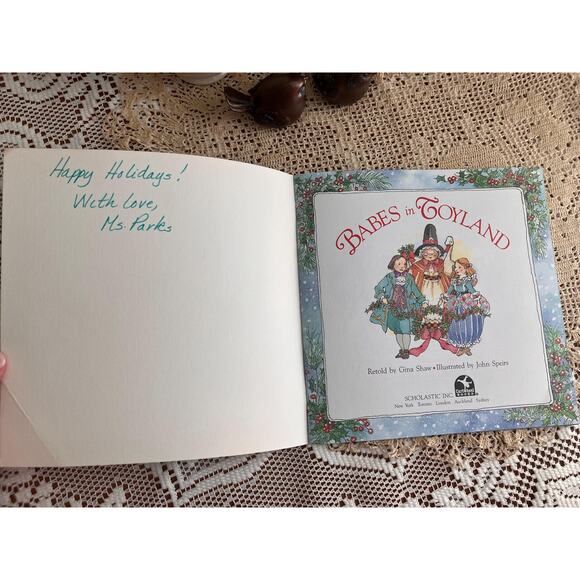 Happy Holidays!
With love,
Ms. Parks
BABES in TOYLAND
Retold by Gina Shaw • Illustrated by John Speirs
SCHOLASTIC INC.
New York Toronto London Auckland Sydney